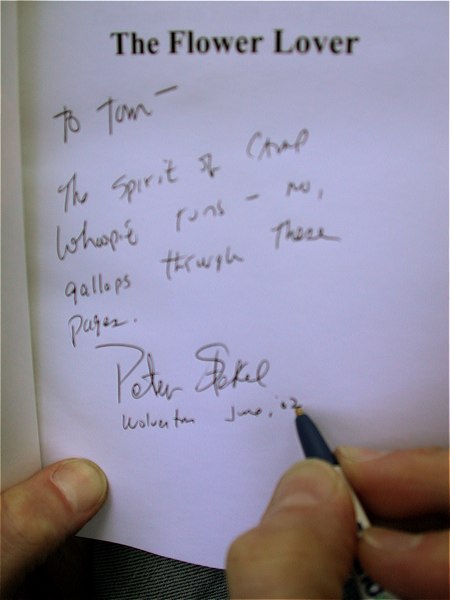 The Flower Lover
To Tom —
The spirit of Camp
Whoopie runs — no,
gallops through these
pages.
Peter Stekel
Wolverton June, '02